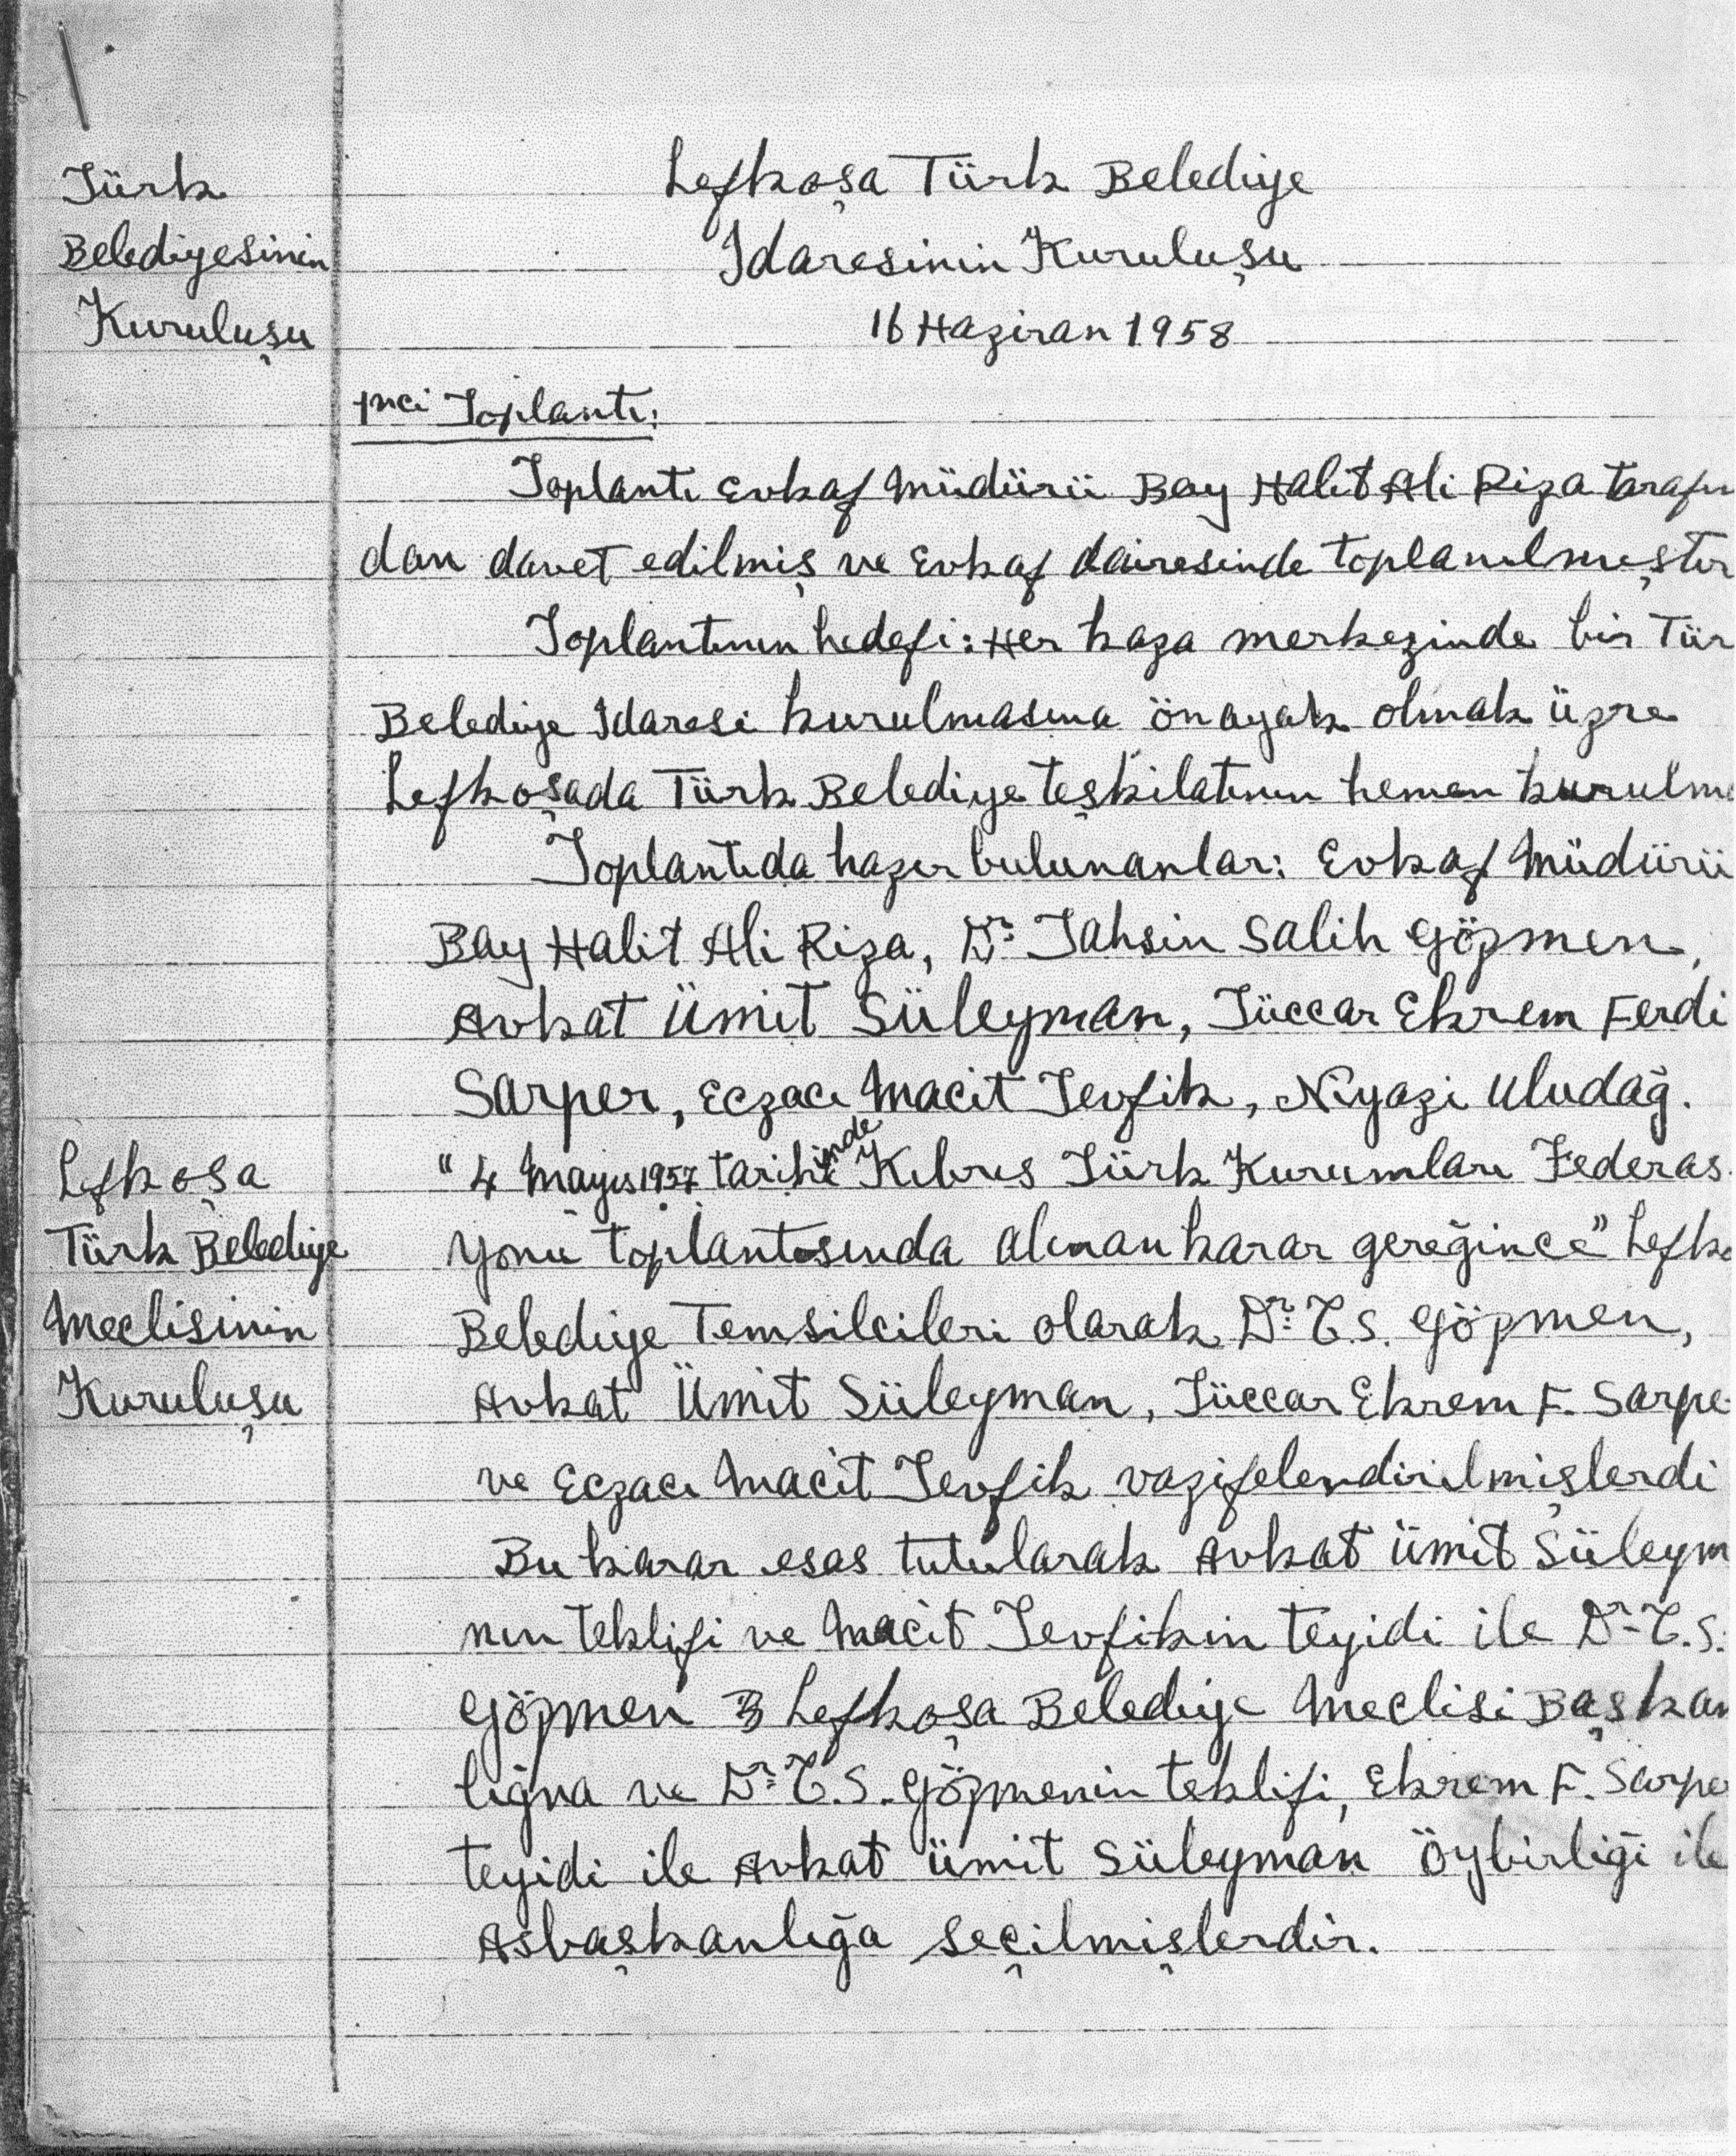 Türk
Belediyesinin
Kuruluşu
Lefkoşa Türk Belediye
Idaresinin Kuruluşu
16 Haziran 1958
1nci Toplantı:
Toplantı Evkaf Müdürü Bay Halit Ali Riza tarafın
dan davet edilmiş ve Evkaf dairesinde toplanılmıştır
Toplantının hedefi: Her kaza merkezinde bir Tür
Belediye Idaresi kurulmasına önayak olmak üzre
Lefkoşada Türk Belediye teşkilatının hemen kurulma
Toplantıda hazır bulunanlar: Evkaf Müdürü
Bay Halit Ali Riza, Dr. Tahsin Salih Gözmen,
Avkat Ümit Süleyman, Tüccar Ekrem Ferdi
Sarper, Eczacı Macit Tevfik, Niyazi Uludağ.
Lefkoşa
Türk Belediye
Meclisinin
Kuruluşu
"4 Mayıs 1957 tarihinde Kıbrıs Türk Kurumları Federas.
yonu toplantısında alınan karar gereğince" Lefko
Belediye Temsilcileri olarak Dr. T.S. Gözmen,
Avkat Ümit Süleyman, Tüccar Ekrem F. Sarpe
ve Eczacı Macit Tevfik vazifelendirilmişlerdi
Bu karar esas tutularak Avkat Ümit Süleym
nın teklifi ve Macit Tevfikin teyidi ile Dr. T.S.
Gözmen Lefkoşa Belediye Meclisi Başkan
lığna ve Dr. T.S. Gözmenin teklifi, Ekrem F. Sarpe
teyidi ile Avkat Ümit Süleyman Öybirliği ile
Asbaşkanlığa seçilmişlerdir.